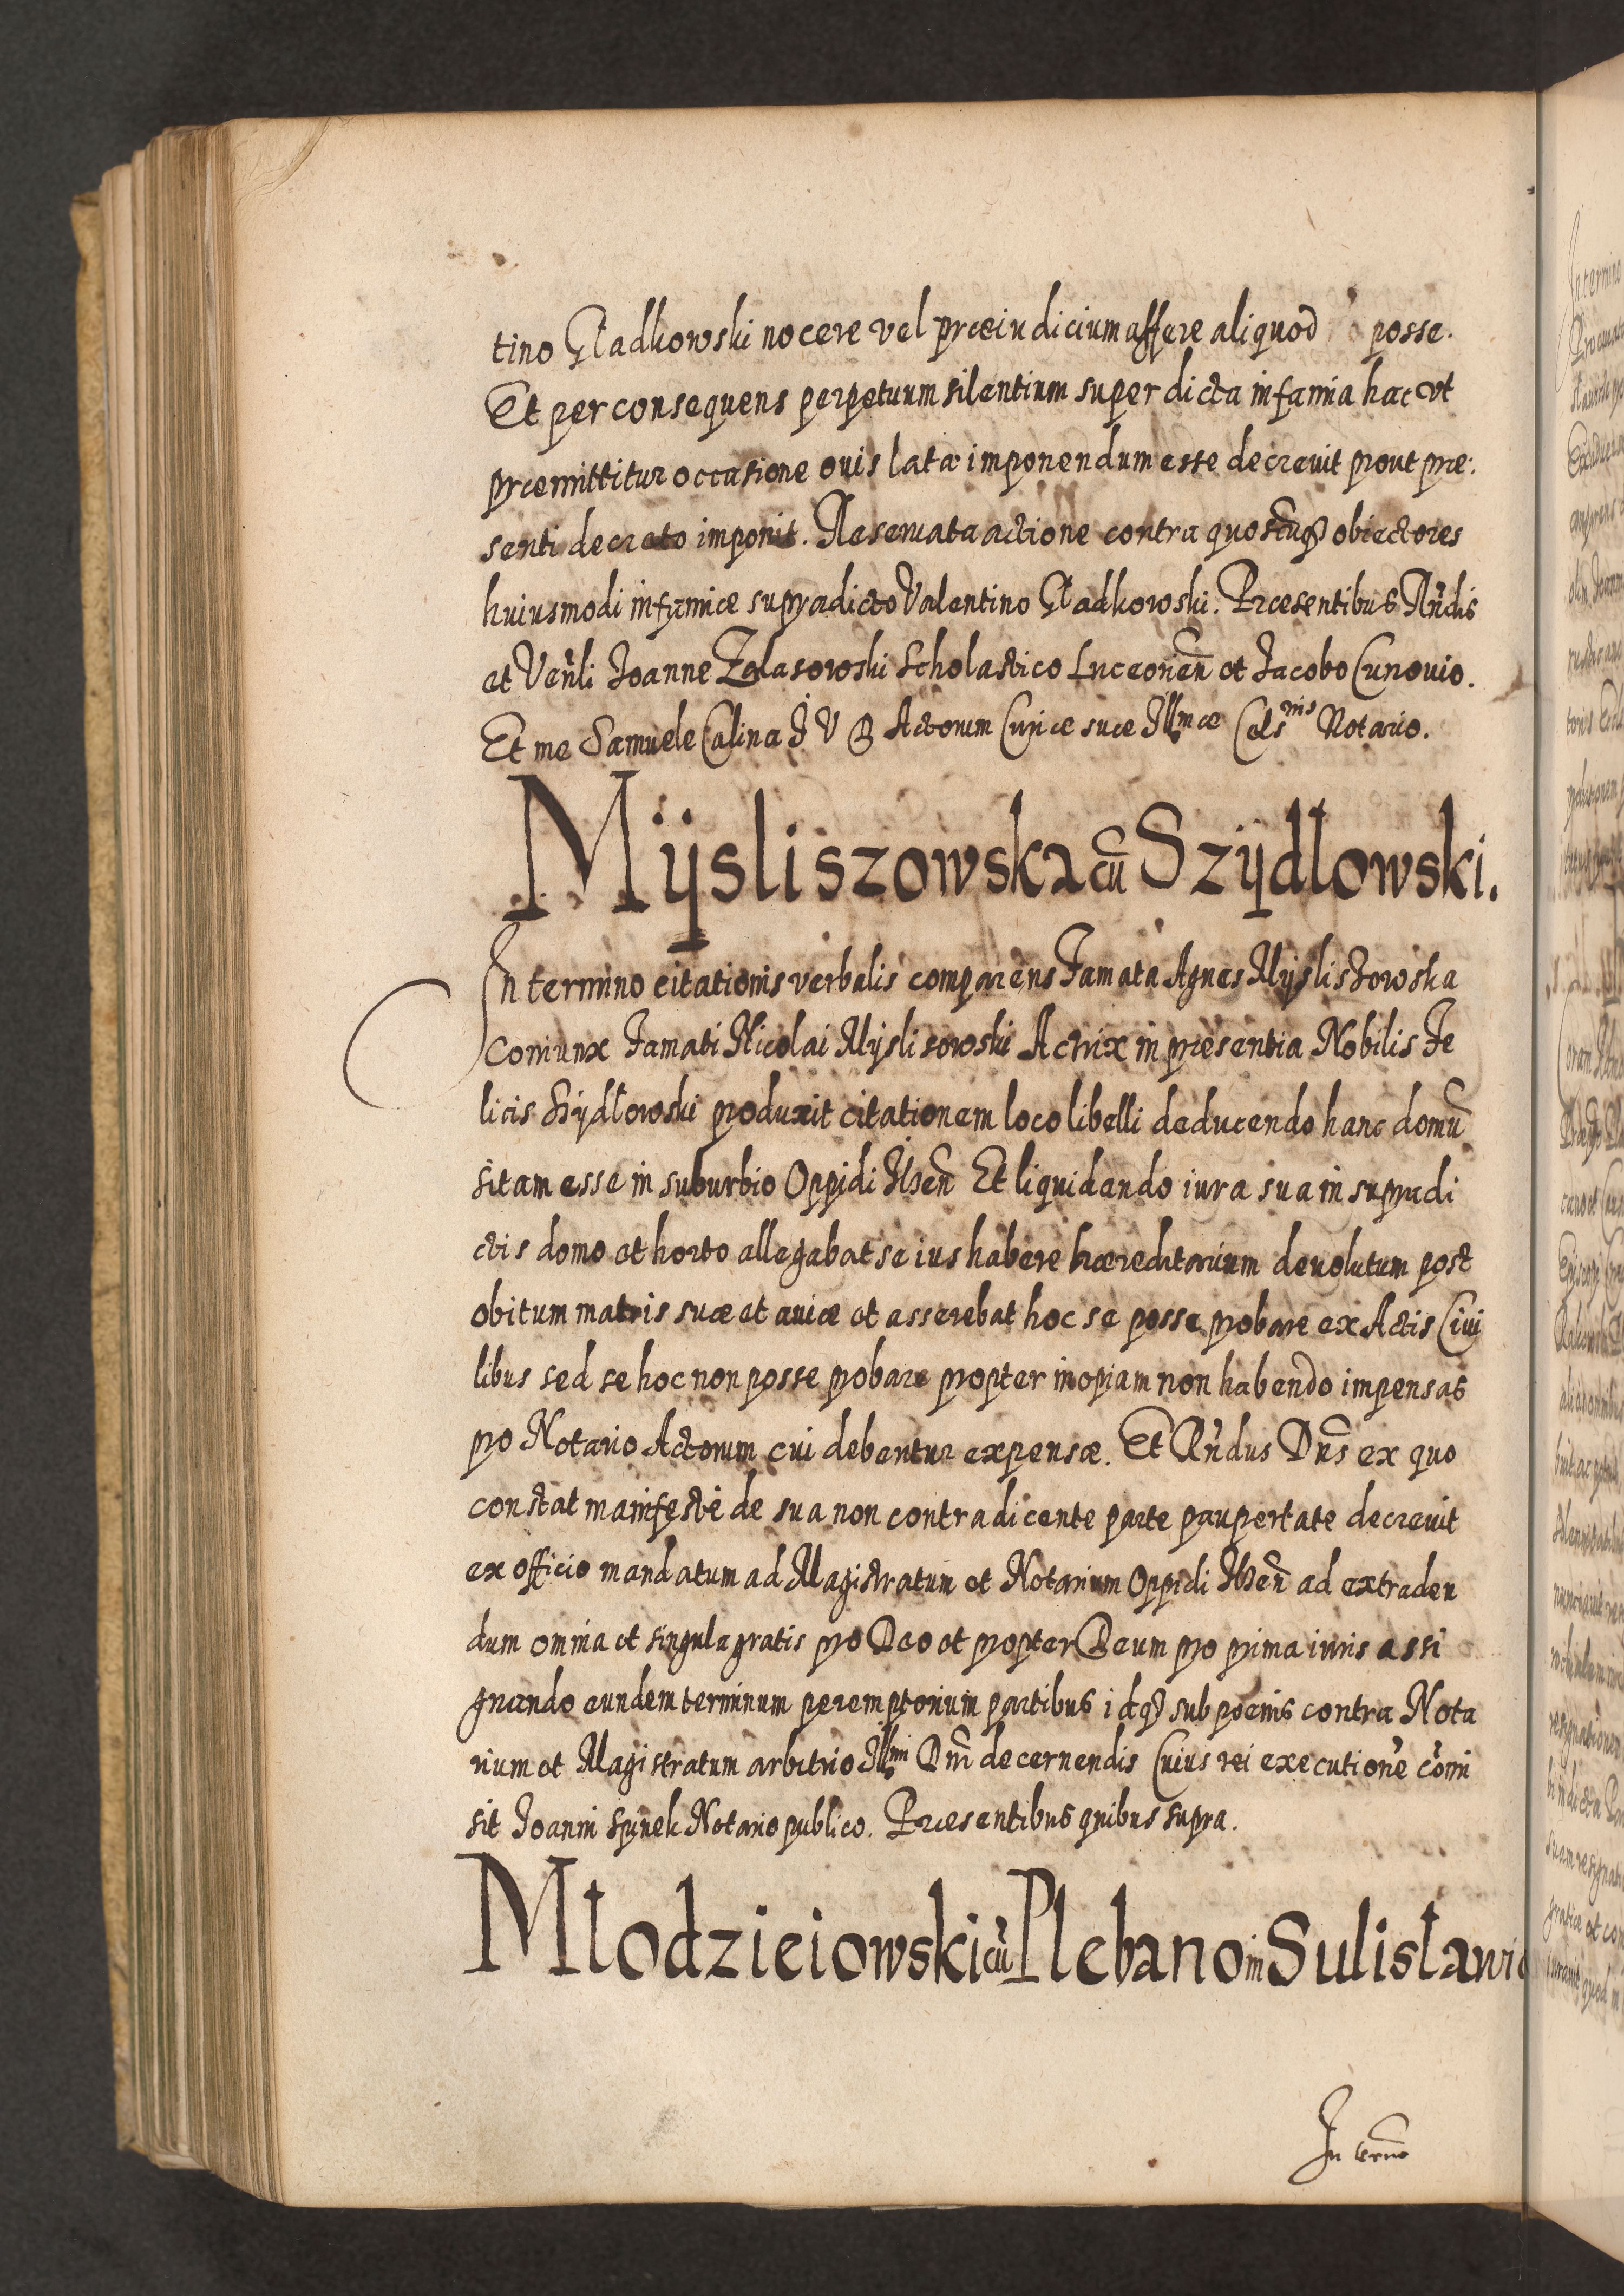 tino Gładkowski nocere vel præiudicium affere aliquod posse.
Et per consequens perpetuum silentium super dicta infamia hac vt
præmittitur occasione ouis lata imponendum esse decreuit prout præ:
senti decreto imponit. Reseruata actione contra quoscũq̃ obiectores
huiusmodi infamiæ supradicto Valentino Gładkowski. Præsentibus Rñdis
et Venli Joanne Zolasowski Scholastico Luceorien̄ et Jacobo Cunouio.
Et me Samuele Calina J V D Actorum Curiæ suæ Illmæ Cels:nis Notario.
Mÿsliszowska cũ Szÿdlowski.
In termino citationis verbalis comparens Famata Agnes Mÿsliszowska
Coniunx Famati Nicolai Mÿslisowski Actrix in præsentia Nobilis Fe
licis Szÿdłowski produxit citationem loco libelli deducendo hanc domũ
sitam esse in suburbio Oppidi Ilzen̄ Et liquidando iura sua in supradi
ctis domo et horto allegabat se ius habere hæreditarium deuolutum post
obitum matris suæ et auiæ et asserebat hoc se posse probare ex Actis Ciui
libus sed se hoc non posse probare propter inopiam non habendo impensas
pro Notario Actorum cui debentur expensæ. Et Rñdus Dñs ex quo
constat manifestè de sua non contradicente parte paupertate decreuit
ex officio mandatum ad Magistratum et Notarium Oppidi Ilzen̄ ad extraden
dum omnia et singula gratis pro Deo et propter Deum pro prima iuris assi
gnando eundem terminum peremptorium partibus idq̃ sub pœnis contra Nota
rium et Magistratum arbitrio Illmi Dñi decernendis Cuius rei executionē cōmi
sit Joanni Spinek Notario publico. Præsentibus quibus supra.
Młodzieiowski cũ Plebano in Sulisławic
In termo